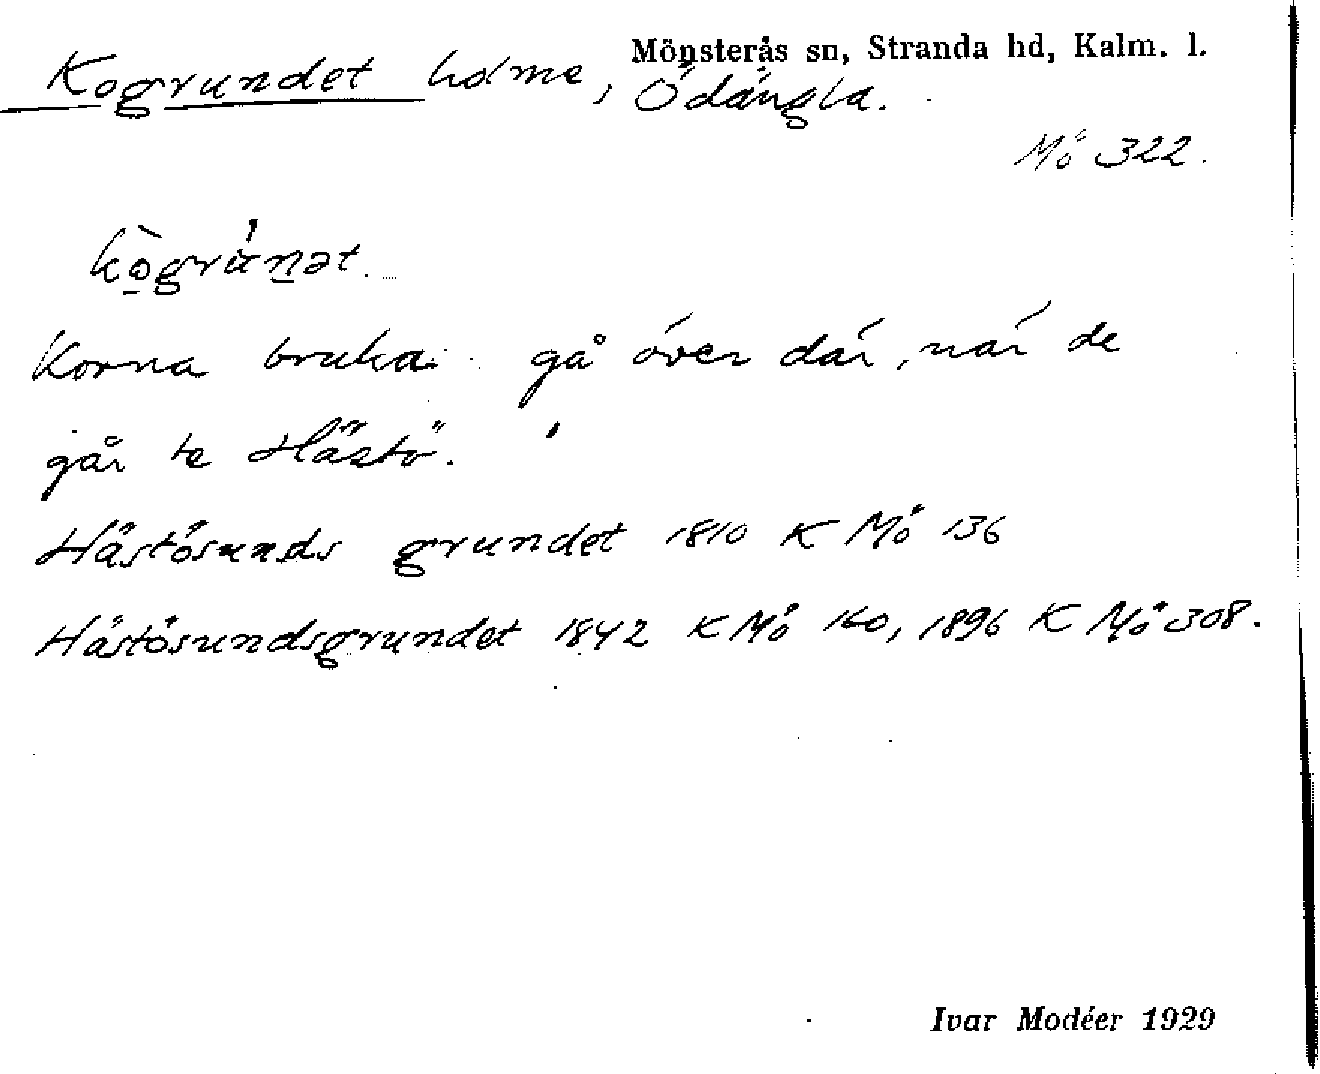 Mönsterås sn, Stranda hd, Kalm. l.
Kogrundet holme, Ödängla.
Mö 322.
kògrúnət.
Korna bruka gå över där, när de
går te Hästö.
Hästösunds grundet 1810 K Mö 136
Hästösundsgrundet 1842 K Mö 160, 1896 K Mö 308.
Ivar Modéer 1929